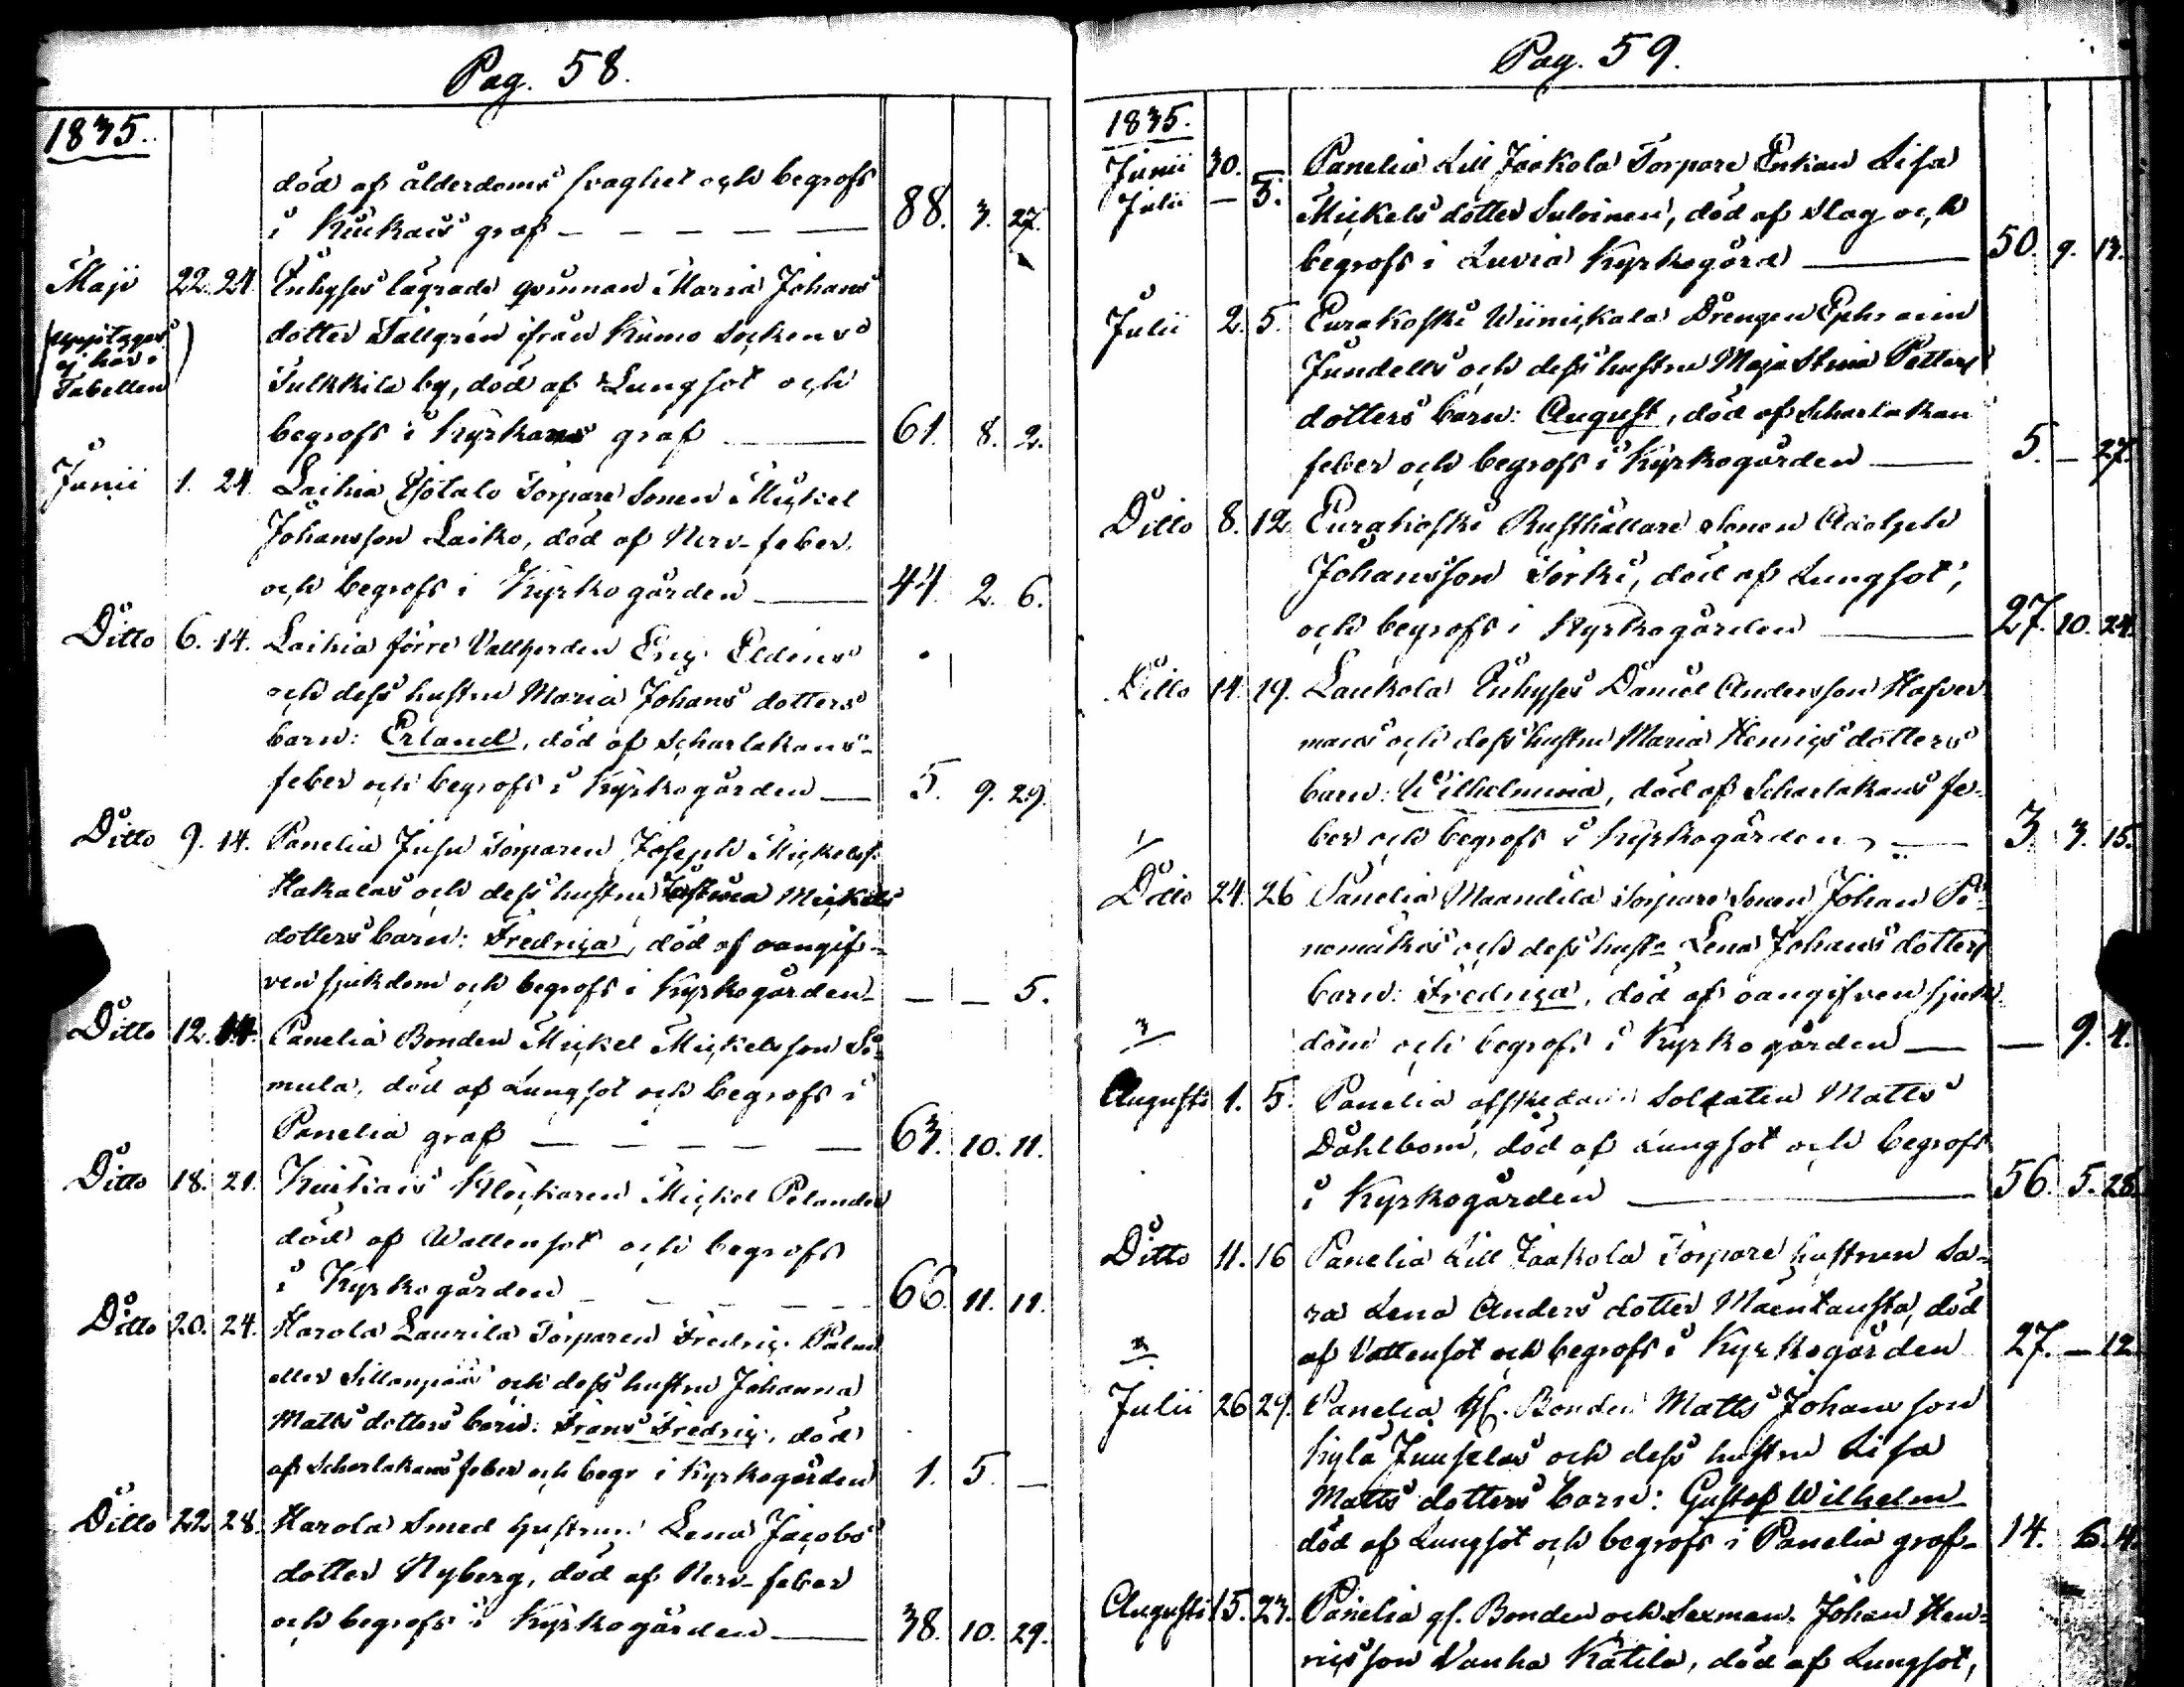 Pag. 58.
1835.
död af ålderdoms svaghet och begrofs
i Kiukais graf — — — — — 88. 3. 27.
Maji 22. 24. Inhyses lägrade qvinnan Maria Johans
(upptages ej här i Tabellen)
dotter Tallgrén ifrån Kumo Sockens
Sulkkila by, död af Lungsot och
begrofs i Kyrkans graf — 61. 8. 2.
Junii 1. 24. Laihia Ojotalo Torpare Sonen Mickel
Johansson Laiko, död af Nerv-feber
och begrofs i Kyrkogården — 44. 2. 6.
Ditto 6. 14. Laihia förre Vallherden Eric Eldins
och dess hustru Maria Johans dotters
barn: Erland, död af Scharlakans-
feber och begrofs i Kyrkogården — 5. 9. 29.
Ditto 9. 14. Panelia Jusu Torparen Joseph Mickelss.
Hakalas och dess hustru Justina Mickels
dotters barn: Fredrica, död af oangif-
ven sjukdom och begrofs i Kyrkogården — — — 5.
Ditto 12. 14. Panelia Bonden Mickel Mickelsson Si-
mula, död af Lungsot och begrofs i
Panelia graf — — — — — 63. 10. 11.
Ditto 18. 21. Kiukais Klockaren Mickel Pelander
död af Wattensot och begrofs
i Kyrkogården — — — — — 66. 11. 11.
Ditto 20. 24. Harola Laurila Torparen Fredric Palm
eller Sillanpää och dess hustru Johanna
Matts dotters barn: Frans Fredric, död
af Scharlakansfeber och begr i Kyrkogården 1. 5. —
Ditto 22. 28. Harola Smed hustrun Lena Jacobs
dotter Nyberg, död af Nerv-feber
och begrofs i Kyrkogården — 38. 10. 29.
Pag. 59.
1835.
Junii 30. Panelia Lill Jaakola Torpare Enkan Lisa
Julii — 5. Mickels dotter Suloinen, död af Slag och
begrofs i Luvia Kyrkogård — 50. 9. 13.
Julii 2. 5. Eurakoski Wiinickala Drengen Ephraim
Jundells och dess hustru Maja Stina Petters
dotters barn: August, död af Scharlakan
feber och begrofs i Kyrkogården — 5. — 27.
Ditto 8. 12 Eurakoski Rusthållare Sonen Adolph
Johansson Torki, död af Lungsot,
och begrofs i Kyrkogården — 27. 10. 24.
Ditto 14. 19. Laukola Inhyses Daniel Andersson Hafver
mans och dess hustru Maria Henrics dotters
barn: Wilhelmina, död af Scharlakans fe-
ber och begrofs i Kyrkogården — 3. 3. 15.
Ditto 24. 26 Panelia Maandila Torpare Sonen Johan Pi-
nomäkis och dess hustr Lena Johans dotters
barn: Fredrica, död af oangifven sjuk
dom och begrofs i Kyrkogården — — 9. 4.
Augusti 1. 5. Panelia afskedade Soldaten Matts
Dahlbom, död af Lungsot och begrofs
i Kyrkogården — 56. 5. 28.
Ditto 11. 16 Panelia Lill Jaakola Torpare hustrun Sa-
ra Lena Anders dotter Mäentausta, död
af Vattensot och begrofs i Kyrkogården 27. — 12.
Julii 26 29. Panelia gl. Bonden Matts Johansson
Kylä Junselas och dess hustru Lisa
Matts dotters barn: Gustaf Wilhelm
död af Lungsot och begrofs i Panelia graf- 14. 6. 4.
Augusti 15. 23. Panelia gl. Bonden och Sexman Johan Hen-
ricsson Vanha Katila, död af Lungsot,